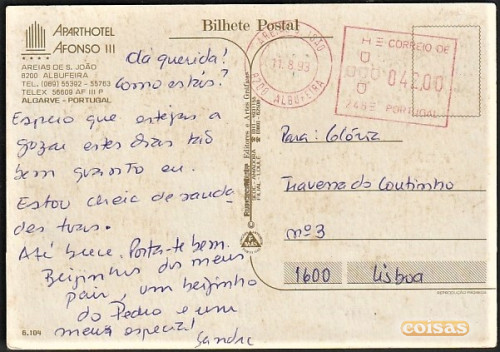 Bilhete Postal
APARTHOTEL
AFONSO III
AREIAS DE S. JOÃO
8200 ALBUFEIRA
TEL. (089)
TELEX 56600 AF III P
ALGARVE - PORTUGAL
Olá querida!
Como estás?
Espero que estejas a
gozar estes dias tão
bem quanto eu.
Estou cheia de sauda-
des tuas.
Até breve. Porta-te bem.
Beijinhos dos meus
pais, um beijinho
do Pedro e um
meu especial!
Sandra
6.104
AREIAS S. JOÃO
11. 8. 93
8200 ALBUFEIRA
CORREIO DE
042.00
PORTUGAL
Para: Glória
Travessa do Coutinho
nº 3
1600 Lisboa
coisas